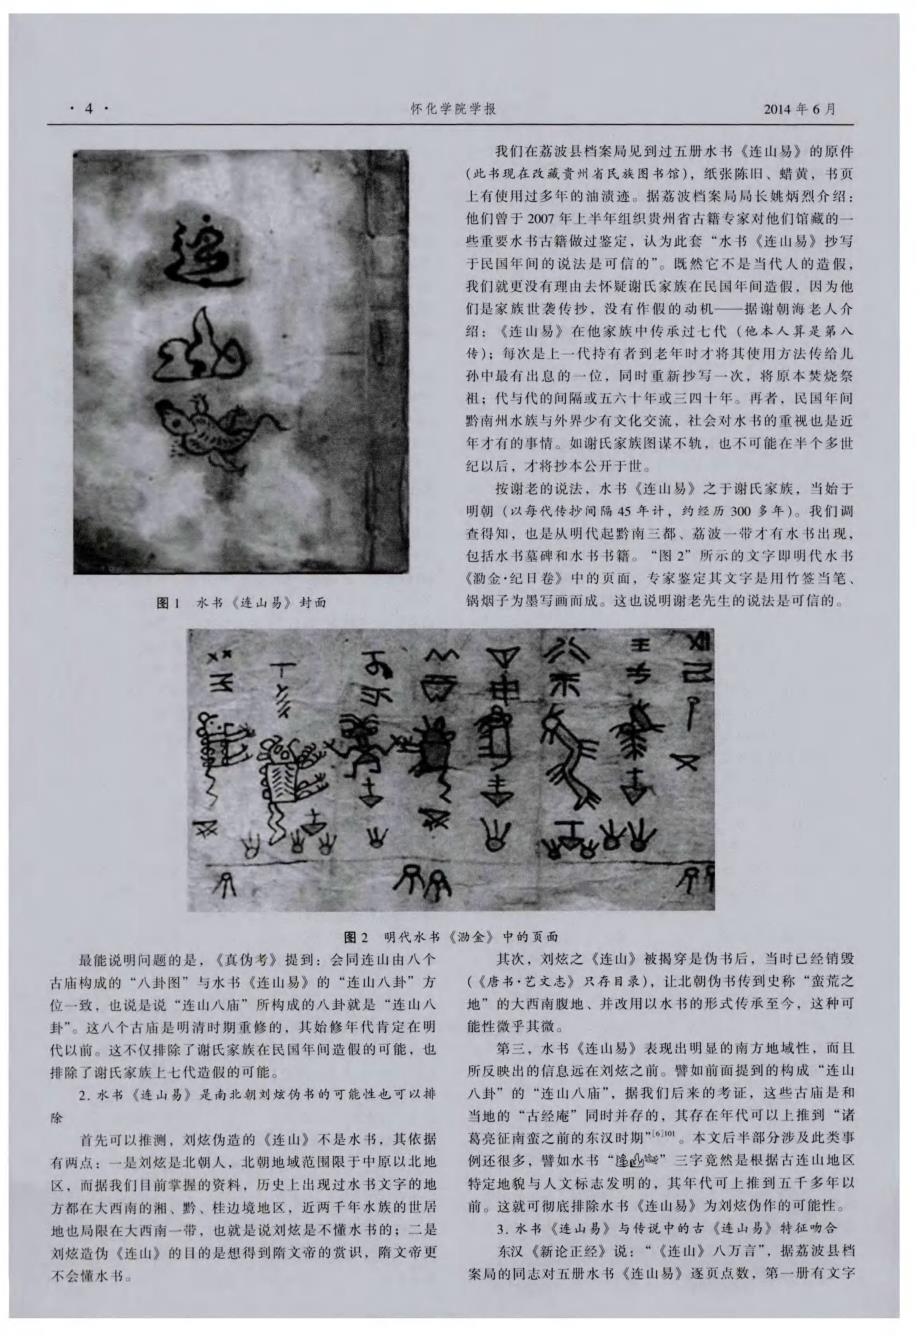 · 4 ·
怀化学院学报
2014 年 6 月
图 1 水书《连山易》封面
我们在荔波县档案局见到过五册水书《连山易》的原件
(此书现在改藏贵州省民族图书馆)，纸张陈旧、蜡黄，书页
上有使用过多年的油渍迹。据荔波档案局局长姚炳烈介绍：
他们曾于 2007 年上半年组织贵州省古籍专家对他们馆藏的一
些重要水书古籍做过鉴定，认为此套“水书《连山易》抄写
于民国年间的说法是可信的”。既然它不是当代人的造假，
我们就更没有理由去怀疑谢氏家族在民国年间造假，因为他
们是家族世袭传抄，没有作假的动机——据谢朝海老人介
绍：《连山易》在他家族中传承过七代（他本人算是第八
传）；每次是上一代持有者到老年时才将其使用方法传给儿
孙中最有出息的一位，同时重新抄写一次，将原本焚烧祭
祖；代与代的间隔或五六十年或三四十年。再者，民国年间
黔南州水族与外界少有文化交流，社会对水书的重视也是近
年才有的事情。如谢氏家族图谋不轨，也不可能在半个多世
纪以后，才将抄本公开于世。
按谢老的说法，水书《连山易》之于谢氏家族，当始于
明朝（以每代传抄间隔 45 年计，约经历 300 多年）。我们调
查得知，也是从明代起黔南三都、荔波一带才有水书出现，
包括水书墓碑和水书书籍。“图 2”所示的文字即明代水书
《泐金·纪日卷》中的页面，专家鉴定其文字是用竹签当笔、
锅烟子为墨写画而成。这也说明谢老先生的说法是可信的。
图 2 明代水书《泐金》中的页面
最能说明问题的是，《真伪考》提到：会同连山由八个
古庙构成的“八卦图”与水书《连山易》的“连山八卦”方
位一致，也说是说“连山八庙”所构成的八卦就是“连山八
卦”。这八个古庙是明清时期重修的，其始修年代肯定在明
代以前。这不仅排除了谢氏家族在民国年间造假的可能，也
排除了谢氏家族上七代造假的可能。
2. 水书《连山易》是南北朝刘炫伪书的可能性也可以排
除
首先可以推测，刘炫伪造的《连山》不是水书，其依据
有两点：一是刘炫是北朝人，北朝地域范围限于中原以北地
区，而据我们目前掌握的资料，历史上出现过水书文字的地
方都在大西南的湘、黔、桂边境地区，近两千年水族的世居
地也局限在大西南一带，也就是说刘炫是不懂水书的；二是
刘炫造伪《连山》的目的是想得到隋文帝的赏识，隋文帝更
不会懂水书。
其次，刘炫之《连山》被揭穿是伪书后，当时已经销毁
(《唐书·艺文志》只存目录)，让北朝伪书传到史称“蛮荒之
地”的大西南腹地、并改用以水书的形式传承至今，这种可
能性微乎其微。
第三，水书《连山易》表现出明显的南方地域性，而且
所反映出的信息远在刘炫之前。譬如前面提到的构成“连山
八卦”的“连山八庙”，据我们后来的考证，这些古庙是和
当地的“古经庵”同时并存的，其存在年代可以上推到“诸
葛亮征南蛮之前的东汉时期”[6]101。本文后半部分涉及此类事
例还很多，譬如水书“”三字竟然是根据古连山地区
特定地貌与人文标志发明的，其年代可上推到五千多年以
前。这就可彻底排除水书《连山易》为刘炫伪作的可能性。
3. 水书《连山易》与传说中的古《连山易》特征吻合
东汉《新论正经》说：“《连山》八万言”，据荔波县档
案局的同志对五册水书《连山易》逐页点数，第一册有文字